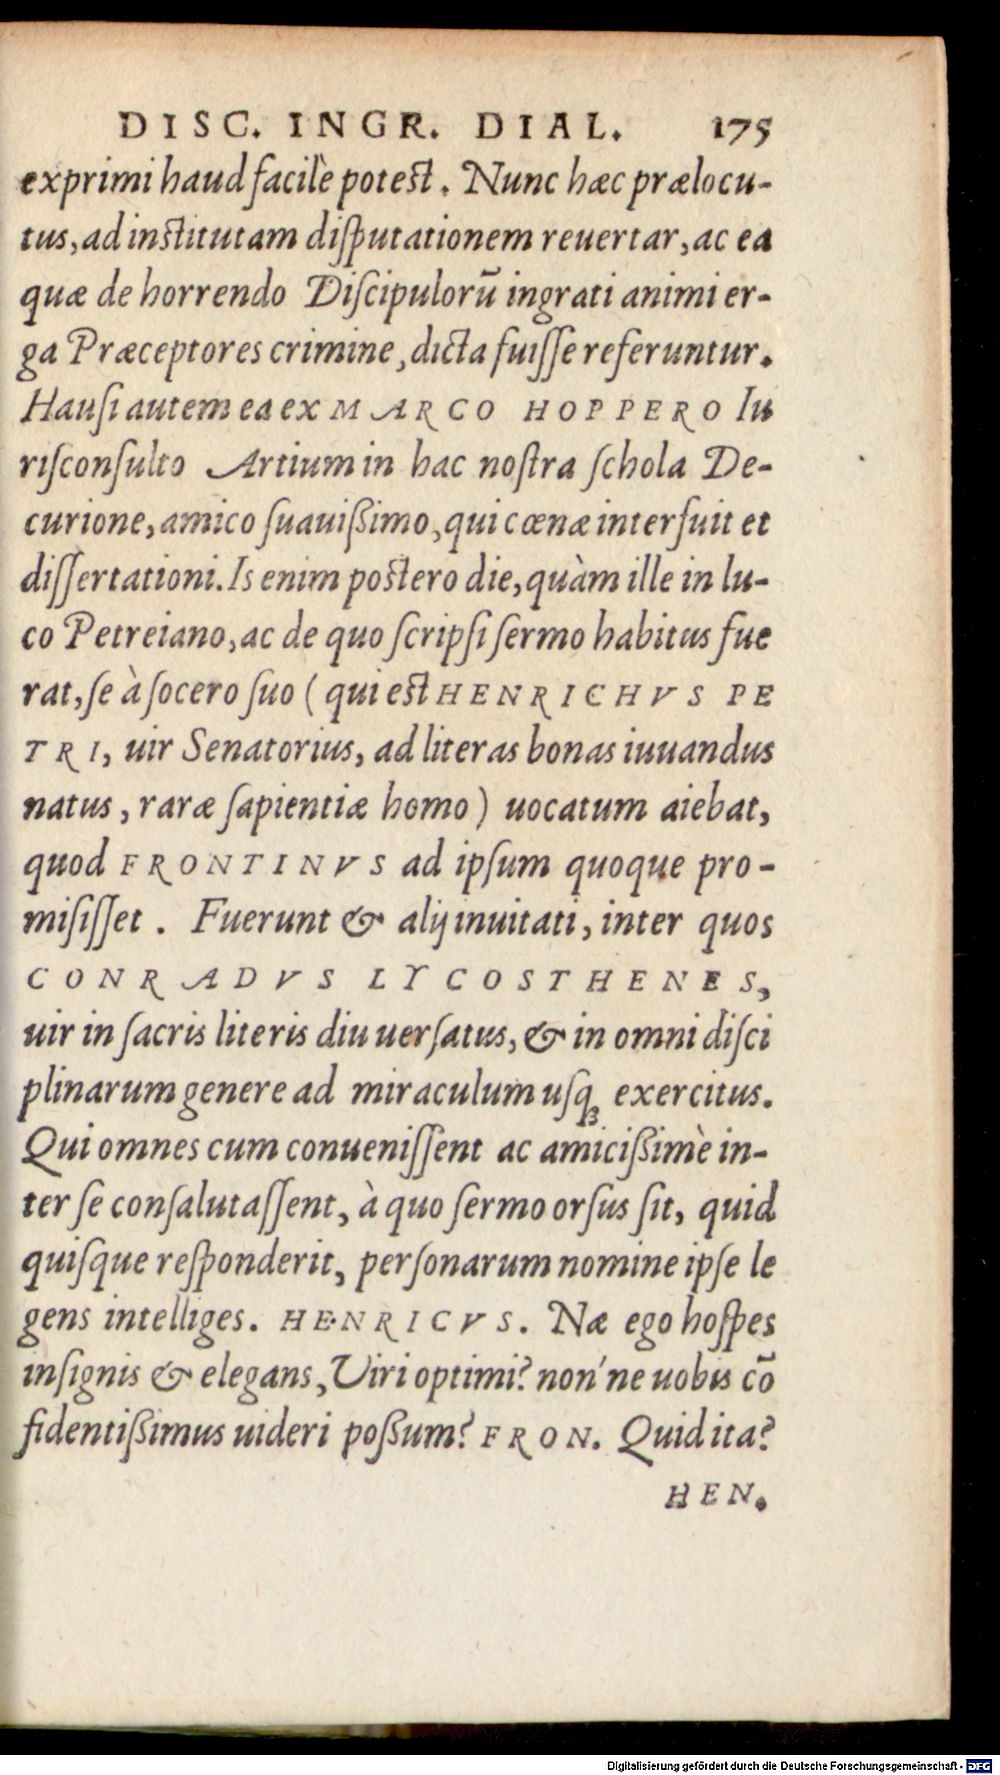 DISC. INGR. DIAL. 175
exprimi haud facilè potest. Nunc hæc prælocu-
tus, ad institutam disputationem reuertar, ac ea
quæ de horrendo Discipulorū ingrati animi er-
ga Præceptores crimine, dicta fuisse referuntur.
Hausi autem ea ex MARCO HOPPERO Iu
risconsulto Artium in hac nostra schola De-
curione, amico suauißimo, qui cœnæ interfuit et
dissertationi. Is enim postero die, quàm ille in lu-
co Petreiano, ac de quo scripsi sermo habitus fue
rat, se à socero suo (qui est HENRICHVS PE
TRI, uir Senatorius, ad literas bonas iuuandus
natus, raræ sapientiæ homo) uocatum aiebat,
quod FRONTINVS ad ipsum quoque pro-
misisset. Fuerunt & alij inuitati, inter quos
CONRADVS LYCOSTHENES,
uir in sacris literis diu uersatus, & in omni disci
plinarum genere ad miraculum usq; exercitus.
Qui omnes cum conuenissent ac amicißimè in-
ter se consalutassent, à quo sermo orsus sit, quid
quisque responderit, personarum nomine ipse le
gens intelliges. HENRICVS. Næ ego hospes
insignis & elegans, Viri optimi? non'ne uobis cō
fidentißimus uideri poßum? FRON. Quid ita?
HEN.
Digitalisierung gefördert durch die Deutsche Forschungsgemeinschaft - DFG